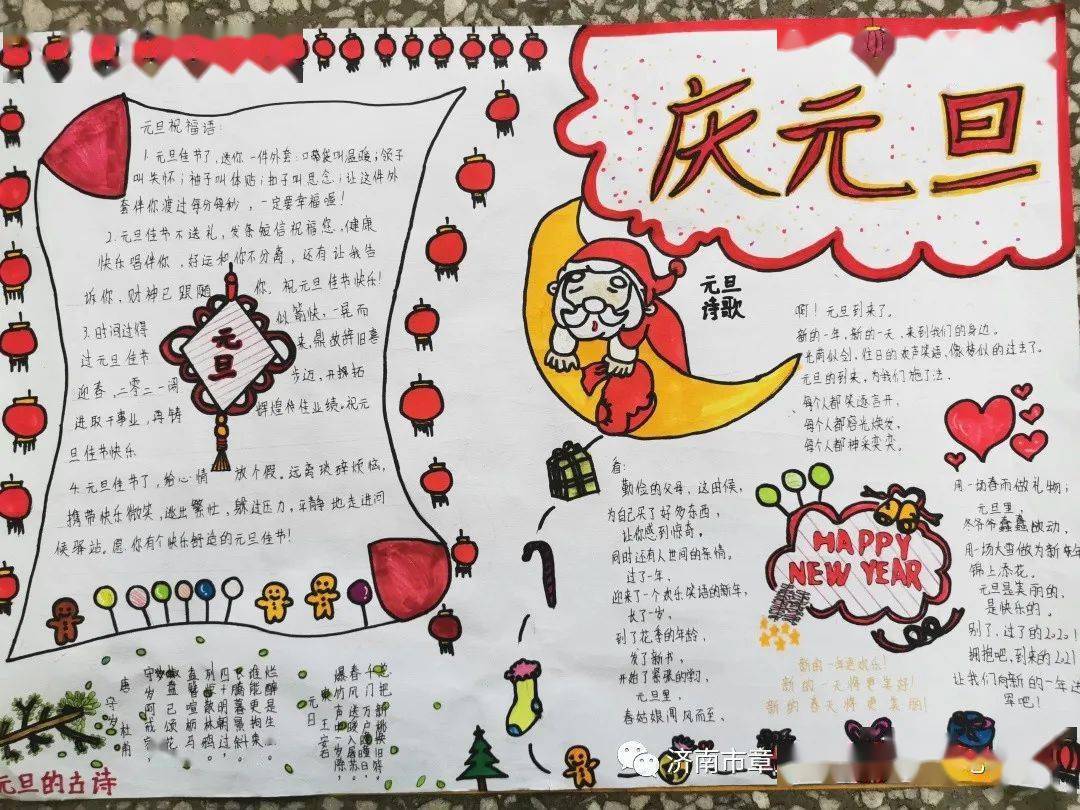 庆元旦
元旦祝福语:
1.元旦佳节了,送你一件外套:口袋叫温暖;领子
叫关怀;袖子叫体贴;扣子叫思念;让这件外
套伴你渡过每分每秒,一定要幸福喔!
2.元旦佳节不送礼,发条短信祝福您,健康
快乐唱伴你,好运和你不分离,还有让我告
诉你,财神已跟随你。祝元旦佳节快乐!
3.时间过得似箭快,一晃而
过元旦佳节来,鼎故辞旧喜
迎春,二零二一阔步迈,开拓
进取干事业,再铸辉煌传佳业绩。祝元
旦佳节快乐
4.元旦佳节了,给心情放个假。远离琐碎烦恼,
携带快乐微笑,逃出繁忙,躲过压力,平静地走进问
候驿站。愿你有个快乐舒适的元旦佳节!
元旦
元旦
诗歌
啊!元旦到来了。
新的一年,新的一天,来到我们的身边。
光阴似剑,往日的欢声笑语,像梦似的过去了。
元旦的到来,为我们施了法。
每个人都笑逐言开,
每个人都容光焕发,
每个人都神采奕奕。
看:
勤俭的父母,这田侯,
为自己买了好多东西,
让你感到惊奇。
同时还有人世间的亲情。
过了一年,
迎来了一个欢乐笑语的新年,
长了一岁,
到了花季的年龄,
发了新书,
开始了紧张的学习,
元旦里,
春姑娘闻风而至,
用一场春雨做礼物;
元旦里,
冬爷爷蠢蠢欲动,
用一场大雪做为新年
锦上添花。
元旦是美丽的,
是快乐的。
别了,过了的2020!
拥抱吧,到来的2021
让我们向新的一年进
军吧!
HAPPY
NEW YEAR
新的一年更欢乐!
新的一天将更美好!
新的春天将更美丽!
元日
王安石
爆竹声中一岁除
春风送暖
千门万户曈曈日
守岁
唐 杜甫
守岁阿戎家
椒盘已颂花
盍簪喧枥马
列炬散林鸦
四十明朝过
飞腾暮景斜
谁能更拘束
烂醉是生涯
元旦的古诗
济南市章